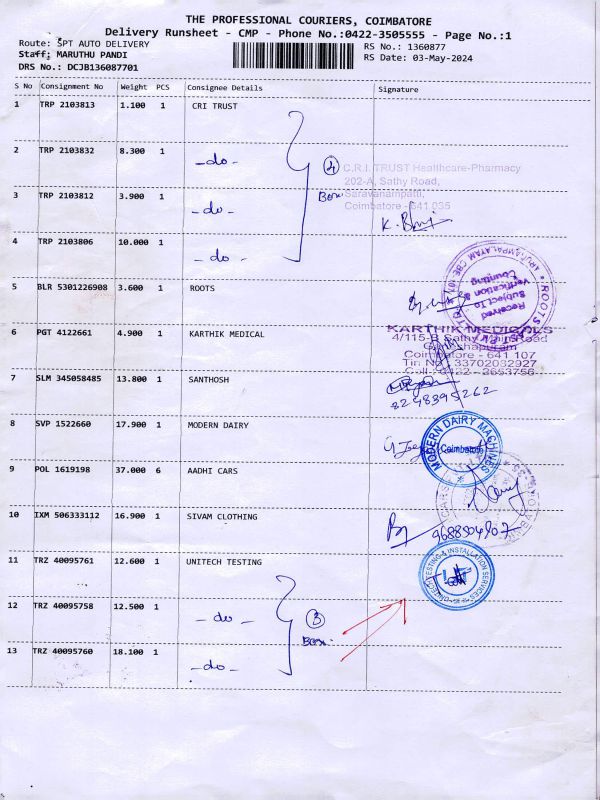 THE PROFESSIONAL COURIERS, COIMBATORE
Delivery Runsheet - CMP - Phone No.:0422-3505555 - Page No.:1
Route: SPT AUTO DELIVERY
RS No.: 1360877
Staff: MARUTHU PANDI
RS Date: 03-May-2024
DRS No.: DCJB136087701
S No Consignment No Weight PCS Consignee Details Signature
1 TRP 2103813 1.100 1 CRI TRUST
2 TRP 2103832 8.300 1 -do-
4 Box
C.R.I. TRUST Healthcare-Pharmacy
202-A, Sathy Road,
Saravanampatti,
Coimbatore - 641 035
3 TRP 2103812 3.900 1 -do-
4 TRP 2103806 10.000 1 -do-
5 BLR 5301226908 3.600 1 ROOTS
ROOTS
Received
Subject To
Verification &
Counting
6 PGT 4122661 4.900 1 KARTHIK MEDICAL
KARTHIK MEDICALS
4/115-B Sathy Main Road
Coimbatore - 641 107
Tin No 33702032927
Cell: 0422 - 2653756
7 SLM 345058485 13.800 1 SANTHOSH
8 SVP 1522660 17.900 1 MODERN DAIRY
MODERN DAIRY MACHINES
Coimbatore
9 POL 1619198 37.000 6 AADHI CARS
10 IXM 506333112 16.900 1 SIVAM CLOTHING
9688504907
11 TRZ 40095761 12.600 1 UNITECH TESTING
UNITECH TESTING & INSTALLATION SERVICES
12 TRZ 40095758 12.500 1 -do-
3 Box
13 TRZ 40095760 18.100 1 -do-